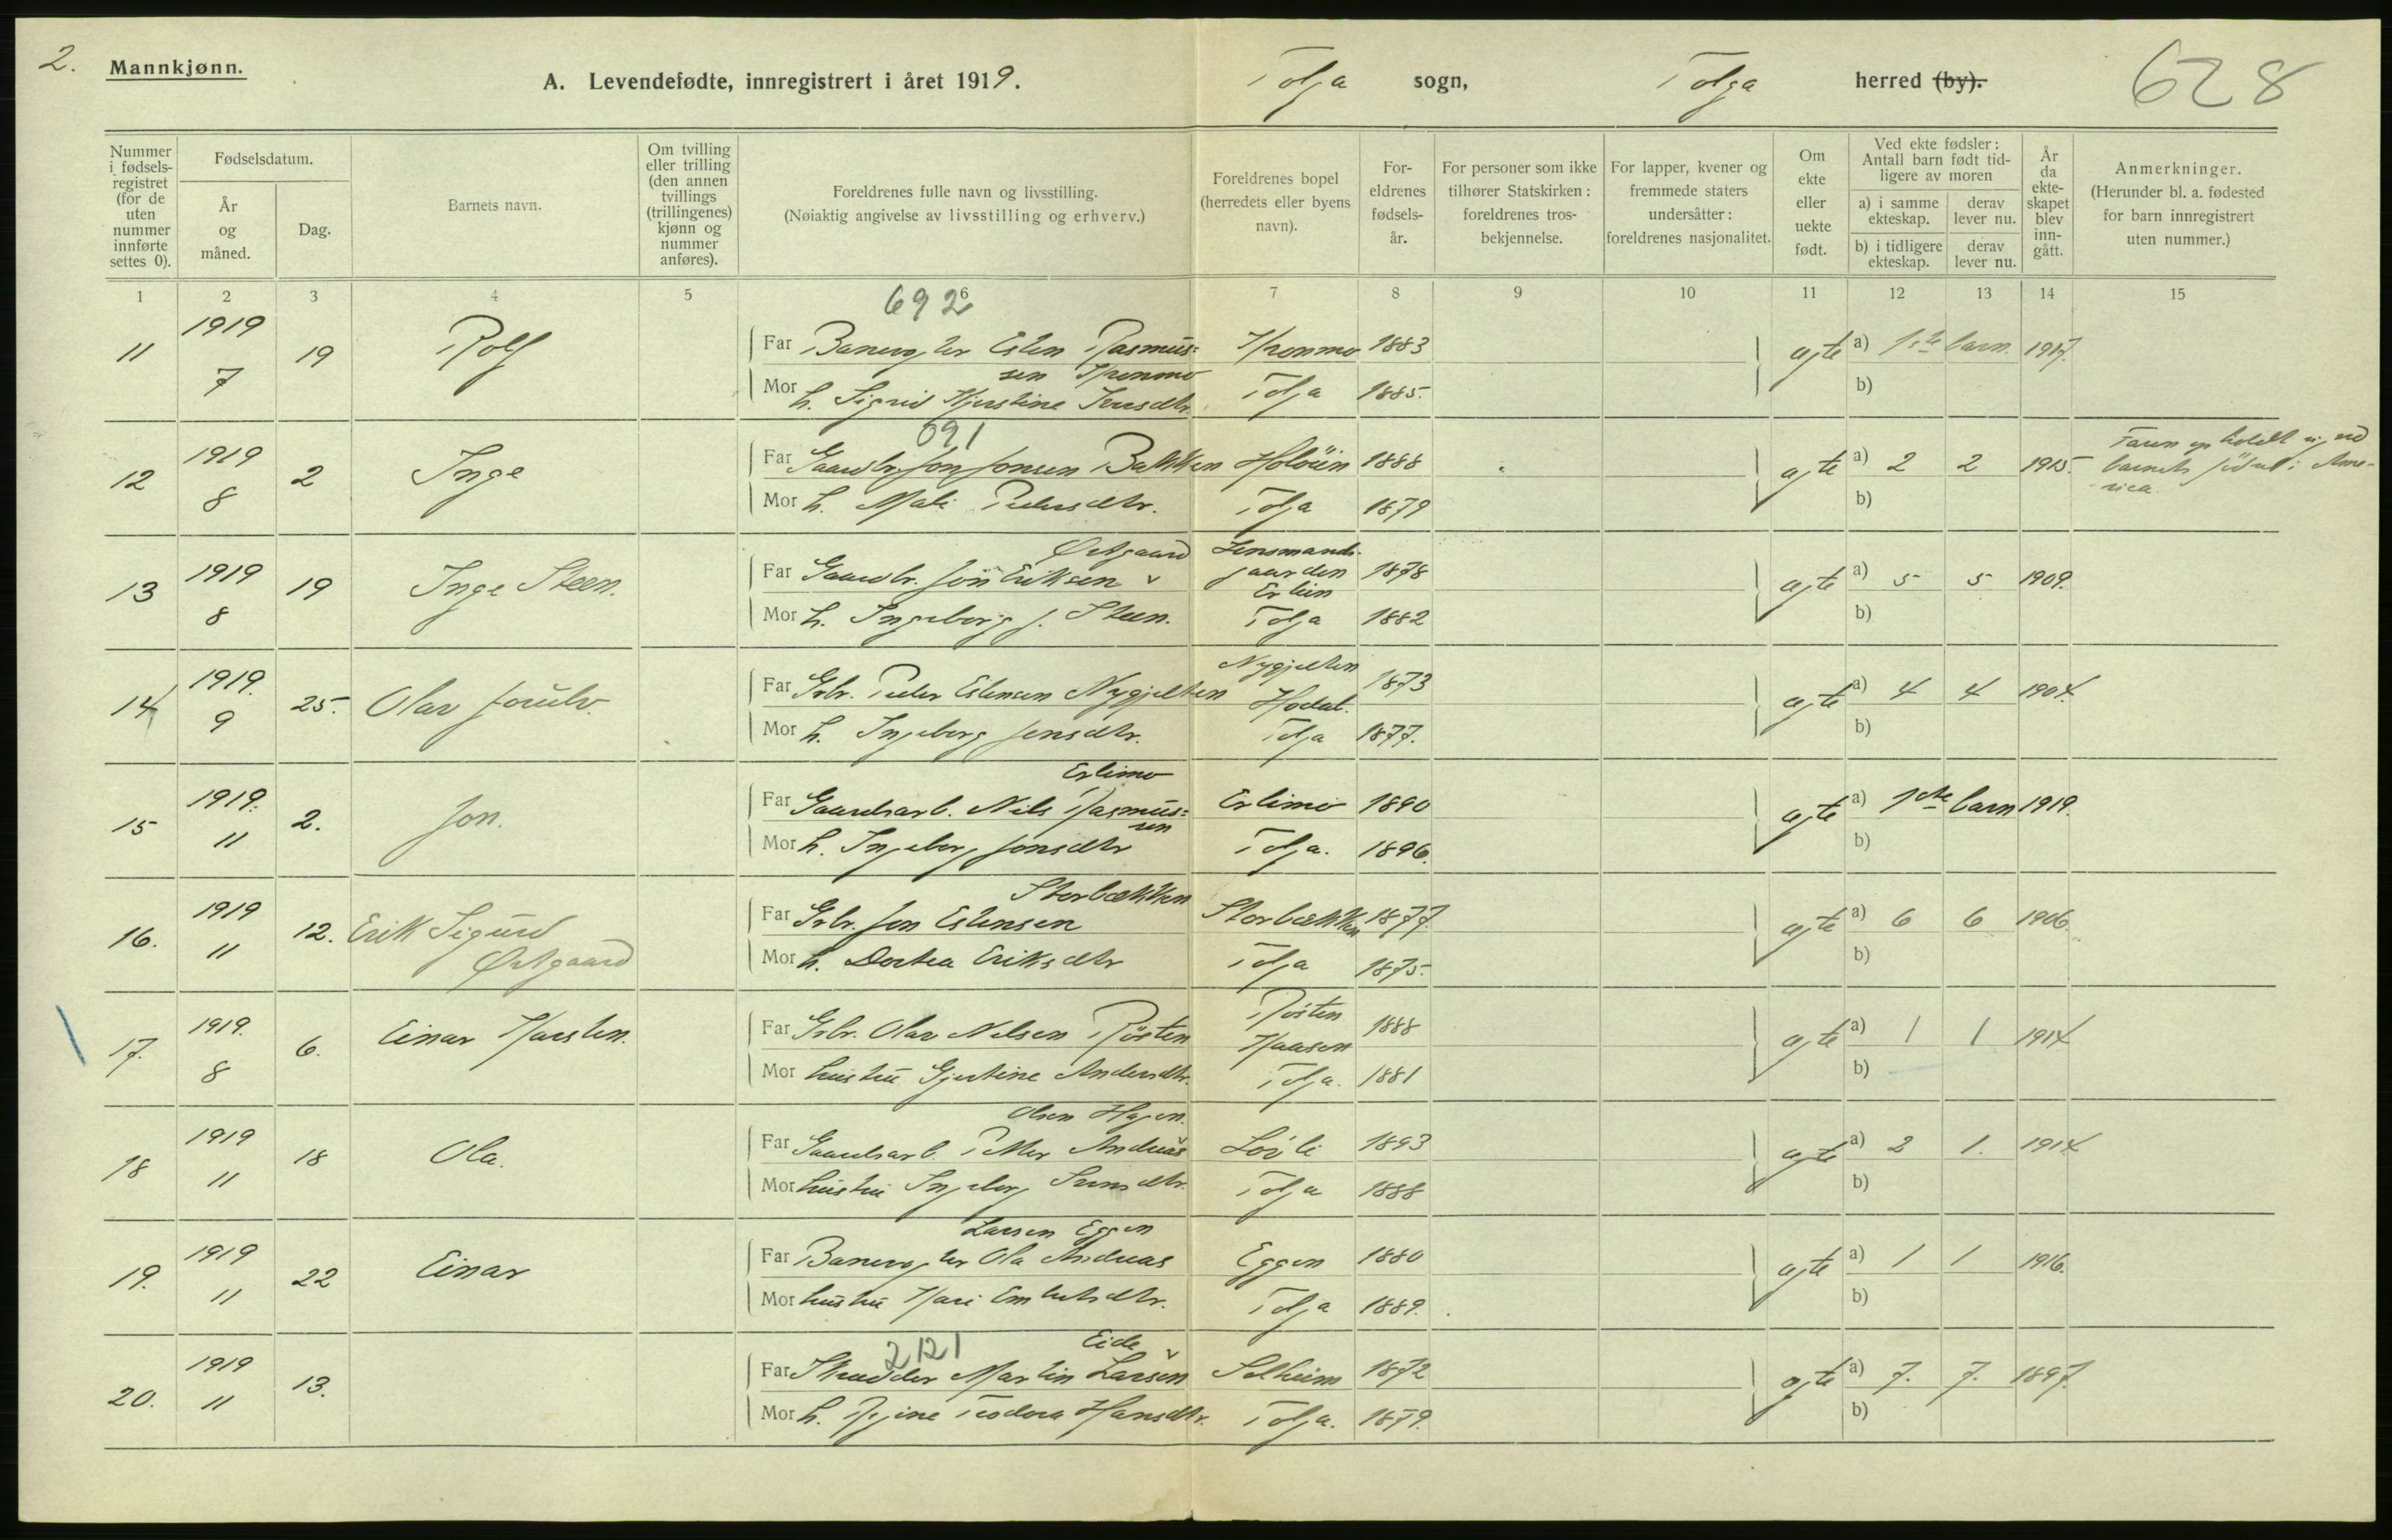 2.
Mannkjønn.
A. Levendefødte, innregistrert i året 1919.
Tolga sogn,
Tolga herred (by).
628
Nummer i fødsels-registret (for de uten nummer innførte settes 0).
Fødselsdatum.
År og måned.
Dag.
Barnets navn.
Om tvilling eller trilling (den annen tvillings (trillingenes) kjønn og nummer anføres).
Foreldrenes fulle navn og livsstilling.
(Nøiaktig angivelse av livsstilling og erhverv.)
Foreldrenes bopel (herredets eller byens navn).
For-eldrenes fødsels-år.
For personer som ikke tilhører Statskirken: foreldrenes tros-bekjennelse.
For lapper, kvener og fremmede staters undersåtter: foreldrenes nasjonalitet.
Om ekte eller uekte født.
Ved ekte fødsler: Antall barn født tid-ligere av moren
a) i samme ekteskap.
derav lever nu.
b) i tidligere ekteskap.
derav lever nu.
År da ekte-skapet blev inn-gått.
Anmerkninger.
(Herunder bl. a. fødested for barn innregistrert uten nummer.)
1 2 3 4 5 6 7 8 9 10 11 12 13 14 15
692
11 1919 7 19 Rolf
Far Banevogter Esten Rasmus=sen Kronmo Kronmo 1883
Mor h. Sigrid Kjerstine Jensdtr. Tolga 1885.
ægte a) 1ste barn. 1917.
b)
691
12 1919 8 2 Inge
Far Gaardbr. Jon Jonsen Bakken Holöien 1888
Mor h. Mali Pedersdtr. Tolga 1879
ægte a) 2 2 1915.
b)
Faren opholdt sig ved barnets födsel i Ame-rica
13 1919 8 19 Inge Steen.
Far Gaardbr. Jon Eriksen Østgaard Lensmands-gaarden Erlien 1878
Mor h. Ingeborg J. Steen. Tolga 1882
ægte a) 5 5 1909.
b)
14 1919. 9 25. Olav Joralv.
Far Grbr. Peder Estensen Nygjelten Nygjelten Hodal. 1873
Mor h. Ingeborg Jensdtr. Tolga 1877.
ægte a) 4 4 1904.
b)
15 1919. 11 2. Jon.
Far Gaardsarb. Nils Rasmus=sen Erlimo Erlimo 1890
Mor h. Ingeborg Jonsdtr Tolga. 1896.
ægte a) 1ste barn 1919.
b)
16. 1919 11 12. Erik Sigurd Østgaard
Far Grbr. Jon Estensen Storbækken Storbækken 1877.
Mor h. Dortea Eriksdtr Tolga 1875.
ægte a) 6 6 1906.
b)
17. 1919. 8 6. Einar Karsten.
Far Grbr. Olav Nilsen Rösten Rösten Haasen 1888
Mor hustru Gjertine Andersdtr. Tolga. 1881
ægte a) 1 1 1914
b)
18 1919 11 18 Ola.
Far Gaardsarb. Petter Andreas Olsen Hagen. Lövli 1893
Mor hustru Ingeborg Svensdtr. Tolga 1888
ægte a) 2 1. 1914
b)
19. 1919 11 22 Einar
Far Banevogter Ola Andreas Larsen Eggen Eggen 1880
Mor hustru Kari Embretsdtr. Tolga 1889.
ægte a) 1 1 1916.
b)
2121
20. 1919 11 13.
Far Skrædder Martin Larsen Eide Solheim 1872
Mor h. Regine Teodora Hansdtr. Tolga. 1879.
ægte a) 7. 7. 1897.
b)